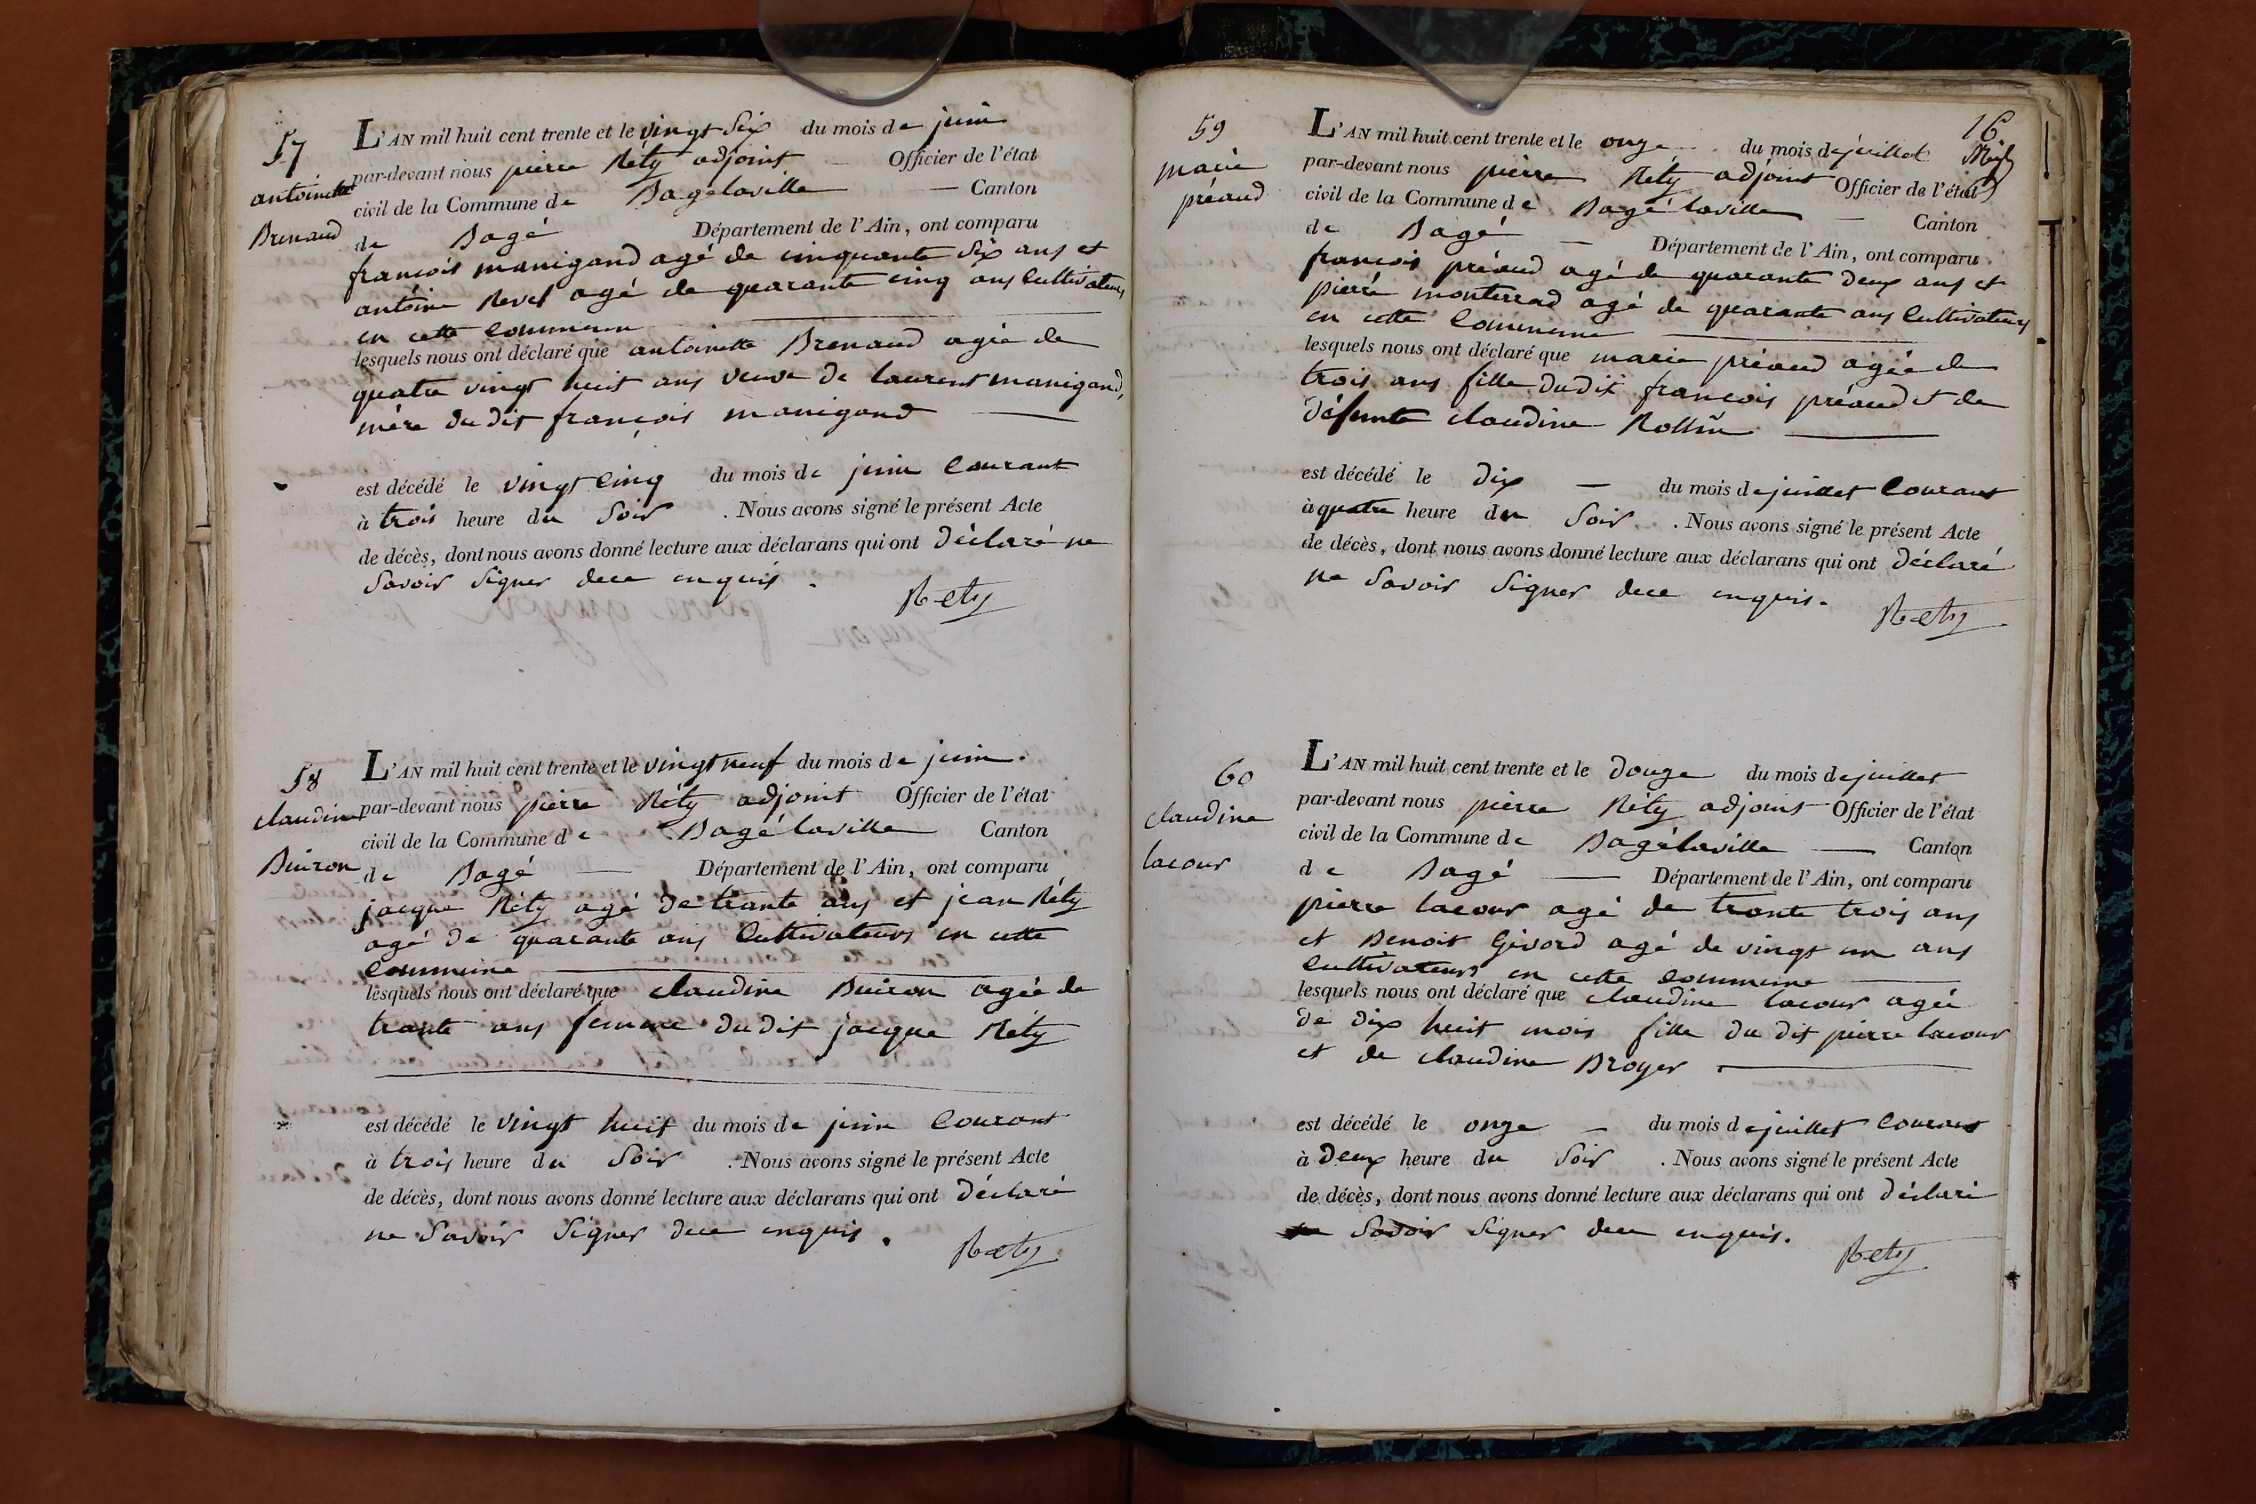 57
antoinette
Brenaud
L'AN mil huit cent trente et le vingt six du mois de juin
par-devant nous pierre Réty adjoint — Officier de l'état
civil de la Commune de Bagélaville — Canton
de Bagé Département de l'Ain, ont comparu
francois manigand agé de cinquante six ans et
antoine Revel agé de quarante cinq ans Cultivateurs
en cette Commune
lesquels nous ont déclaré que antoinette Brenaud agée de
quatre vingt huit ans veuve de laurent manigand,
mère du dit françois manigand
est décédé le vingt Cinq du mois de juin Courant
à trois heure du Soir . Nous avons signé le présent Acte
de décès, dont nous avons donné lecture aux déclarans qui ont déclaré ne
Savoir Signer dece enquis .
Rety
58
claudine
Buiron
L'AN mil huit cent trente et le vingt neuf du mois de juin.
par-devant nous pierre Réty adjoint Officier de l'état
civil de la Commune de Bagélaville Canton
de Bagé — Département de l'Ain, ont comparu
jacque Réty agé de trante ans et jean Réty
agé de quarante ans Cultivateurs en cette
Commune
lesquels nous ont déclaré que claudine Buiron agée de
trante ans femme du dit jacque Réty
est décédé le vingt huit du mois de juin Courant
à trois heure du Soir . Nous avons signé le présent Acte
de décès, dont nous avons donné lecture aux déclarans qui ont déclaré
ne Savoir Signer dece enquis .
Rety
16
59
marie
préaud
L'AN mil huit cent trente et le onze du mois de juillet
par-devant nous pierre Réty adjoint Officier de l'état
civil de la Commune de Bagélaville — Canton
de Bagé — Département de l'Ain, ont comparu
francois préaud agé de quarante deux ans et
pierre monterrad agé de quarante ans Cultivateurs
en cette Commune
lesquels nous ont déclaré que marie préaud agée de
trois ans fille dudit francois préaud et de
défunte claudine Rollin
est décédé le dix — du mois de juillet Courant
à quatre heure du Soir . Nous avons signé le présent Acte
de décès, dont nous avons donné lecture aux déclarans qui ont déclaré
ne Savoir Signer dece enquis.
Rety
60
claudine
lacour
L'AN mil huit cent trente et le douze du mois de juillet
par-devant nous pierre Réty adjoint Officier de l'état
civil de la Commune de Bagélaville — Canton
de Bagé — Département de l'Ain, ont comparu
pierre lacour agé de trante trois ans
et Benoit Givord agé de vingt un ans
Cultivateurs en cette Commune
lesquels nous ont déclaré que claudine lacour agée
de dix huit mois fille du dit pierre lacour
et de claudine Broyer
est décédé le onze — du mois de juillet Courant
à deux heure du Soir . Nous avons signé le présent Acte
de décès, dont nous avons donné lecture aux déclarans qui ont déclaré
ne Savoir Signer dece enquis.
Rety